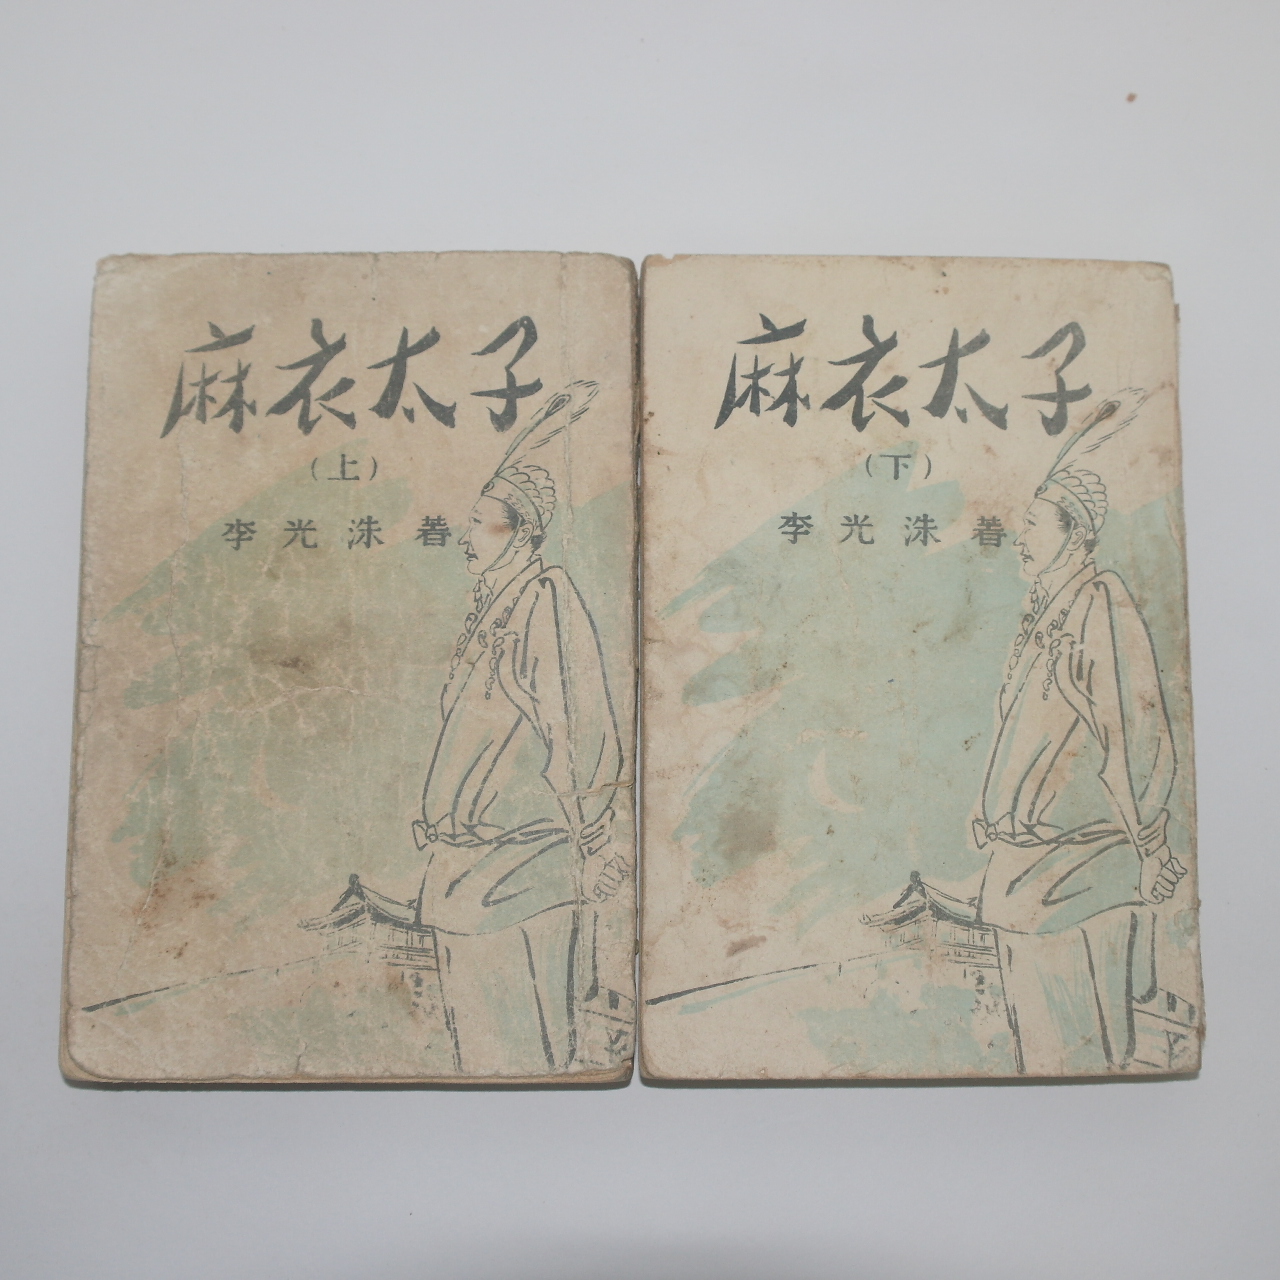 麻衣太子
(上)
李光洙 著
麻衣太子
(下)
李光洙 著